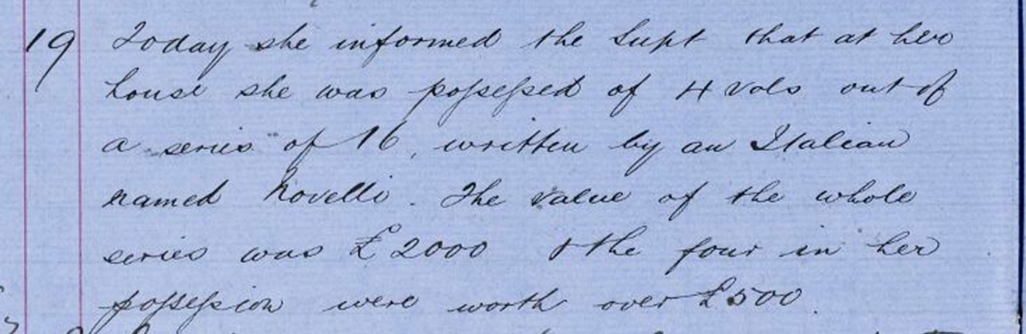 19 Today she informed the Supt that at her
house she was possessed of 4 vols out of
a series of 16, written by an Italian
named Novelli. The value of the whole
series was £2000 & the four in her
possession were worth over £500